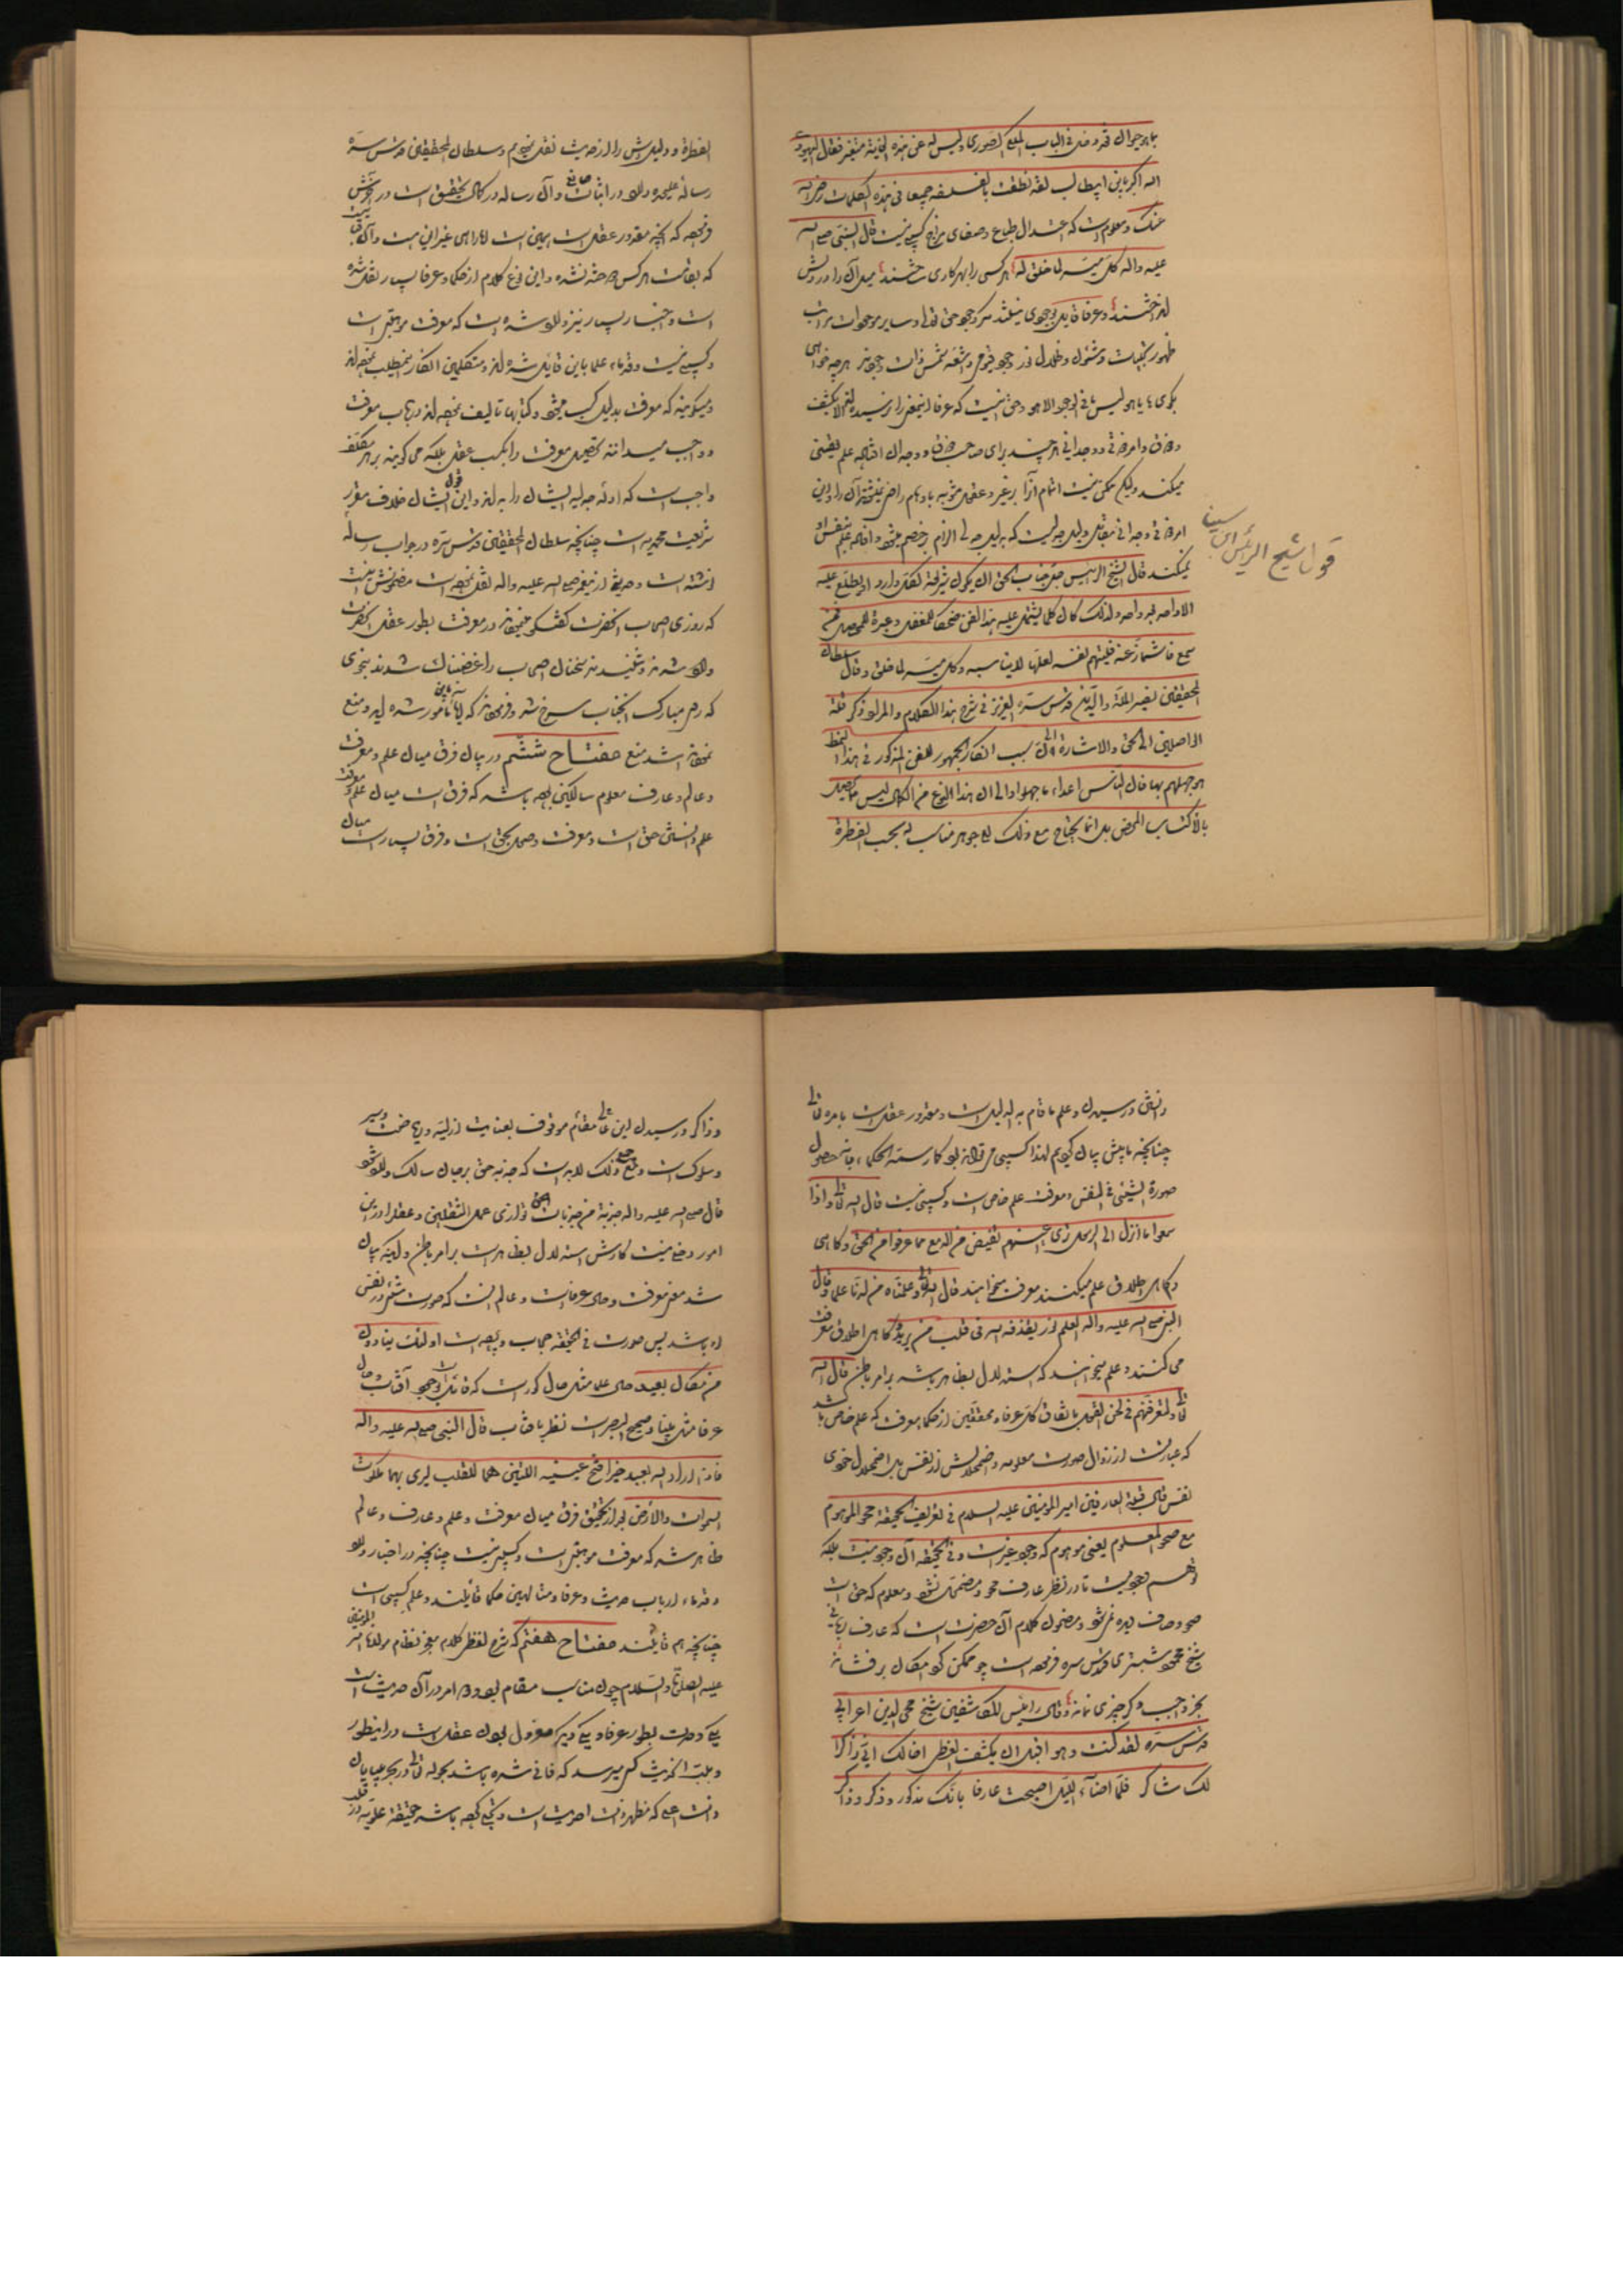 بما هو حیوان قد دخل فی الباب الملکی الصوری ولیس له عن هذه الغایة مفر فقال الیهودی
الله اکبر یابن ابیطالب لقد نطقت بالفلسفة جمیعا فی هذه الکلمات رضی الله
عنک و معلوم است که اعتدال طباع و صفای مزاج کسبی نیست قال النبی صلی الله
علیه واله کل میسر لما خلق له هر کسی را بهر کاری ساختند میل آن را در دلش
انداختند و عرفا قایل بوجودی نیستند مگر وجود حق تعالی و سایر موجودات مراتب
ظهور تجلیات و شئون و ظلال نور وجود قیوم و اشعه شمس ذات وجودند هر چه خواهی
بگوی یا هو لیس ما فی الوجود الا هو و حق اینست که عرفا اینمعنی را نرسیده‌اند الا بکشف
و ذوق و امر ذوقی و وجدانی هر چند برای صاحب ذوق و وجدان افاده علم یقینی
میکند ولیکن ممکن نیست اتمام آن بر غیر و عقل مشوب باوهام راضی نمیشود آن را و این
امر ذوقی وجدانی مقابل دلیل جدلیست که دلیل جدلی الزام بر خصم میشود و افاده علم بنفس او
نمیکند قال الشیخ الرئیس جل جناب الحق ان یکون شریعة لکل وارد او یطلع علیه
الا واحد بعد واحد ولذلک کان کلما یشتمل علیه هذا الفن ضحکة للمغفل و عبرة للمحصل فمن
سمع فاشمأز عنه فلیتهم نفسه لعلها لا یناسبه وکل میسر لما خلق و قال سلطان
المحققین نصیر الملة والدین قدس سره العزیز فی شرح هذا الکلام والمراد ذکر قلة
الواصلین الی الحق والاشارة الی ان سبب انکار الجمهور للفن المذکور فی هذا النمط
هو جهلهم بها فان الناس اعداء ما جهلوا و الی ان هذا النوع من الکمال لیس مما یحصل
بالاکتساب المحض بل انما یحتاج مع ذلک الی جوهر مناسب له بحسب الفطرة
قول شیخ الرئیس ابن سینا
الفطرة و دلیلش را از حدیث نقل نمودیم و سلطان المحققین قدس سره
رساله علیحده دارد در اثبات صانع و آن رساله در کمال تحقیق است در آخرش
فرموده که آنچه مقدور عقل است همین است اما راهی غیر این هست و آن
که بقامت هر کس دوخته نشده و این نوع کلام از حکما و عرفا بسیار نقل شده
است و اخبار بسیار نیز وارد شده است که معرفت موهبتی است
و کسبی نیست و قدماء علما باین قایل شده‌اند و متکلمین انکار اینمطلب نموده‌اند
و میگویند که معرفت بدلیل کسب میشود و کتابها تالیف نموده‌اند در باب معرفت
و واجب میدانند تحصیل معرفت را بکسب عقل بلکه می گویند بر هر مکلف
واجب است که ادله جدلیه ایشان را بداند و این قول ایشان خلاف مقرر
شریعت محمدیه است چنانچه سلطان المحققین قدس سره در جواب رساله
نوشته است و حدیثی از پیغمبر صلی الله علیه واله نقل نموده است مضمونش اینست
که روزی اصحاب آنحضرت گفتگو میفرمودند در معرفت بطور عقل آنحضرت
وارد شدند و شنیدند سخنان اصحاب را غضبناک شدند بنحوی
که روی مبارک آنجناب سرخ شد و فرمودند که آیا باین مأمور شده اید و منع
نمودند اشد منع مفتاح ششم در بیان فرق میان علم و معرفت
و عالم و عارف معلوم سالکین بوده باشد که فرق است میان علم و معرفت
علم دانستن حق است و معرفت وصول بحق است و فرق بسیار است میان
دانستن و رسیدن و علم ما قام به الدلیل است و مقدور عقل است بامره تعالی
چنانچه ما پیش بیان کردیم لهذا کسبی می‌تواند بود کما رسمته الحکماء بانه حصول
صورة الشیئ فی النفس و معرفت علم خاص است و کسبی نیست قال الله تعالی واذا
سمعوا ما انزل الی الرسول تری اعینهم تفیض من الدمع مما عرفوا من الحق و گاهی
و گاهی اطلاق علم میکنند و معرفت میخواهند قال الله تعالی وعلمناه من لدنا علما و قال
النبی صلی الله علیه واله العلم نور یقذفه الله فی قلب من یرید و گاهی اطلاق معرفت
می کنند و علم میخواهند که استدلال بظاهر باشد بر امر باطن قال الله
تعالی ولتعرفنهم فی لحن القول باتفاق کل عرفا و محققین از حکما معرفت که علم خاص باشد
که عبارتست از زوال صورت معلومه و اضمحلالش از نفس بل اضمحلال خودی
نفس قال قبلة العارفین امیر المومنین علیه السلام فی تعریف الحقیقة محو الموهوم
مع صحو المعلوم یعنی موهوم که وجود غیر است و فی الحقیقه آن وجود نیست بلکه
وهم وجودیست تا در نظر عارف محو و مضمحل نشود و معلوم که حق است
صحو و صاف دیده نمی‌شود و مضمون کلام آن حضرت است که عارف ربانی
شیخ محمود شبستری قدس سره فرموده است چو ممکن گرد امکان برفشاند
بجز واجب دگر چیزی نماند و قال رئیس المکاشفین شیخ محی الدین اعرابی
قدس سره لقد کنت دهرا قبل ان یکشف الغطاء اخالک انی ذاکرا
لک شاکر فلما اضاء اللیل اصبحت عارفا بانک مذکور و ذکر و ذاکر
و ذاکر و رسیدن این مقام عالی موقوف بعنایت ازلیه و ریاضت و سیر
و سلوک است و مع ذلک لابد است که جذبه حق بر جان سالک وارد شود
قال صلی الله علیه واله جذبة من جذبات الحق توازی عمل الثقلین و عقل را در این
امور دخلی نیست کارش استدلال بظاهر است بر امر باطن و اینکه بیان
شد معنی معرفت و حال عرفاست و عالم آنست که صورت شیء در نفس
او باشد پس صورت فی الحقیقه حجاب دیده است اولئک ینادون
من مکان بعید حال علما مثل حال کور است که قائل است بوجود آفتاب و حال
عرفا مثل بینا و صحیح البصر است نظر بآفتاب قال النبی صلی الله علیه واله
فاذا اراد الله بعبد خیرا فتح عینیه اللتین هما للقلب لیری بهما ملکوت
السموات والارض بعد از تحقیق فرق میان معرفت و علم و عارف و عالم
ظاهر شد که معرفت موهبتی است و کسبی نیست چنانچه در اخبار وارد
و قدماء ارباب حدیث و عرفا و متالهین حکما قائلند و علم کسبی است
چنانچه هم قائلند مفتاح هفتم که شرح لفظ کلام معجز نظام مولانا امیر المومنین
علیه الصلوة والسلام چون مناسب مقام بود و دو امر در آن حدیث است
یکی وحدت بطور عرفا و یکی دیگر معزول بودن عقل است در اینطور
و بلذت این حدیث کسی میرسد که فانی شده باشد بحول الله تعالی در بحر بی‌پایان
ذات علی که مظهر ذات احدیت است و تجلی کرده باشد حقیقة علویه در قلب